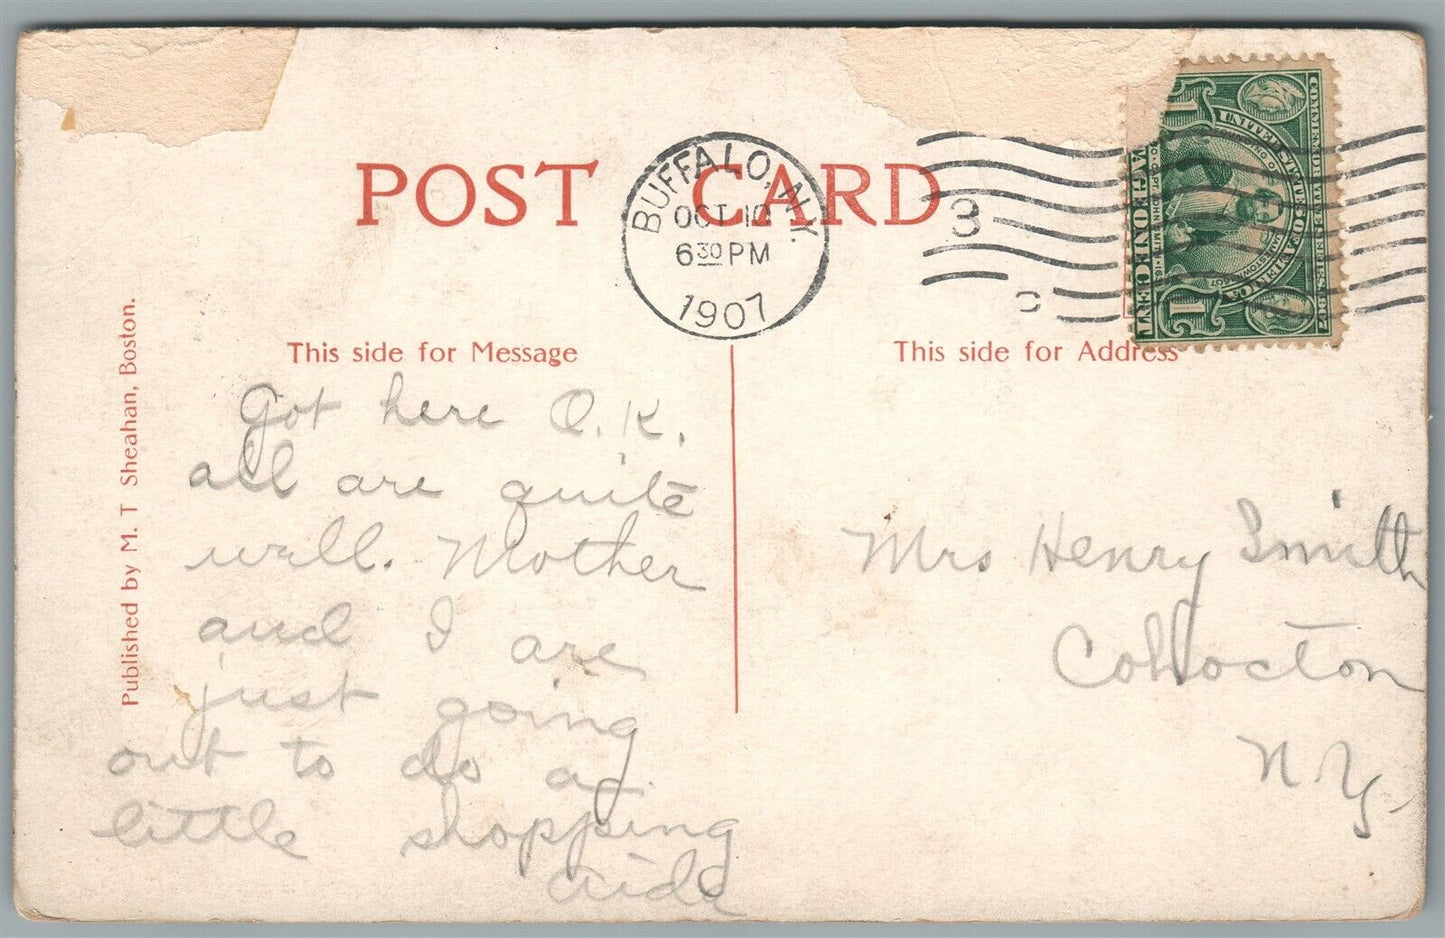 POST CARD
BUFFALO, N.Y.
OCT 10
6 30 PM
1907
3
This side for Message
This side for Address
Published by M. T Sheahan, Boston.
Got here O.K.
all are quite
well. Mother
and I are
just going
out to do a
little shopping
Mrs Henry Smith
Cohocton
N.Y.
ONE CENT
1
1